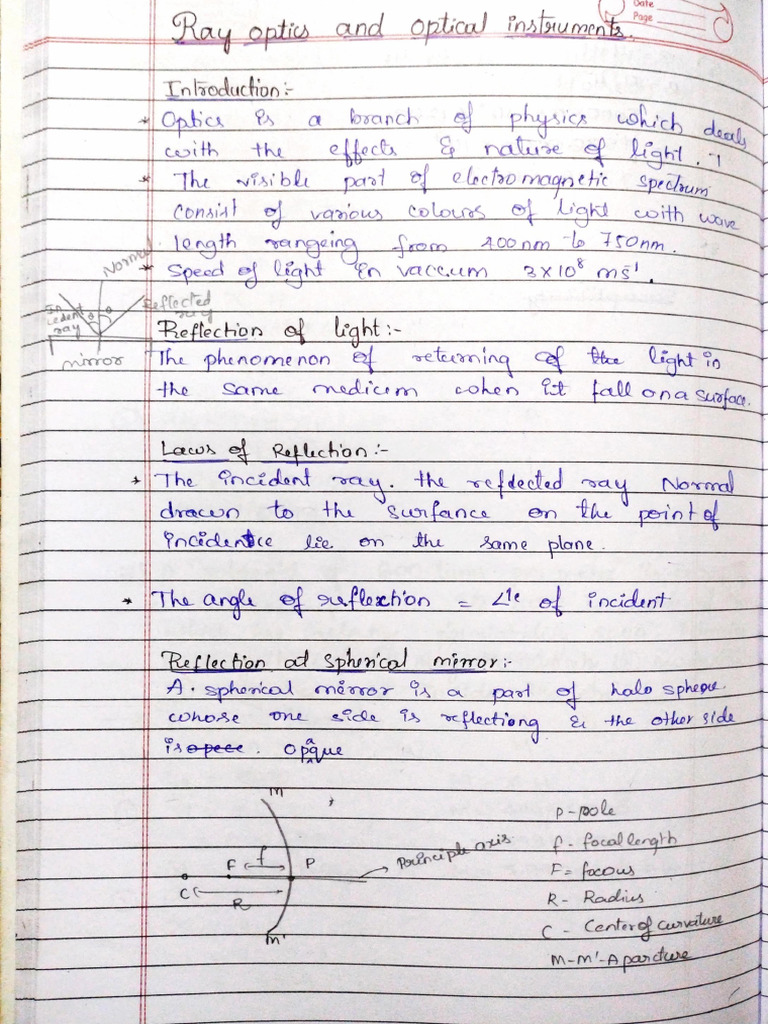 Date
Page
Ray optics and optical instruments.
Introduction:-
* Optics is a branch of physics which deals
with the effects & nature of light.
* The visible part of electromagnetic spectrum
consist of various colours of light with wave
length rangeing from 400nm to 750nm.
* Speed of light in vaccum 3x10⁸ ms⁻¹.
Normal
Incedent ray
Reflected ray
θ θ
mirror
Reflection of light:-
The phenomenon of returning of the light in
the same medium when it fall on a surface.
Laws of Reflection:-
* The incident ray. the reflected ray Normal
drawn to the surfance on the point of
incidentce lie on the same plane.
* The angle of reflexction = ∠le of incident
Reflection at spherical mirror:-
A. spherical mirror is a part of halo sphere
whose one side is reflectiong & the other side
is opece. Opaque
M
F f P
Principle axis
C R
M'
P-pole
f- focal length
F= focous
R- Radius
C - Center of curvature
M-M'-Aparcture